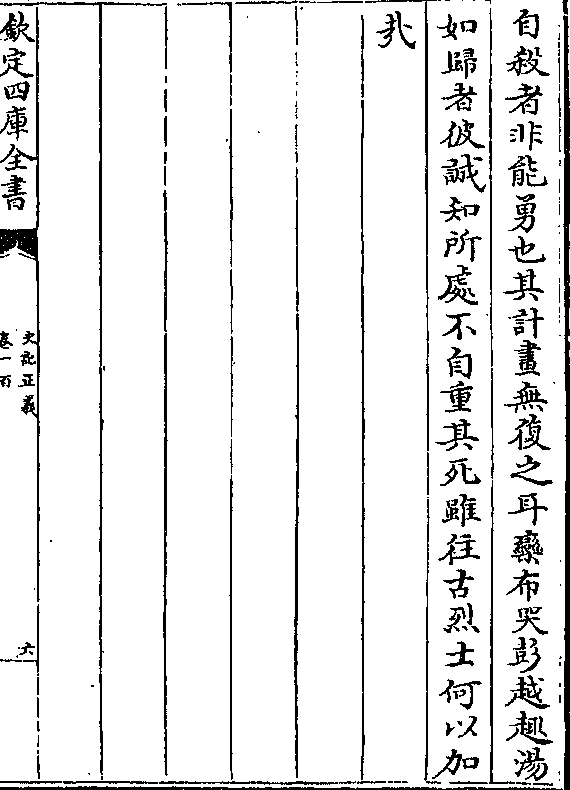 自殺者非能勇也其計畫無復之耳欒布哭彭越趣湯
如歸者彼誠知所處不自重其死雖往古烈士何以加
哉
欽定四庫全書
史記正義
卷一百
六